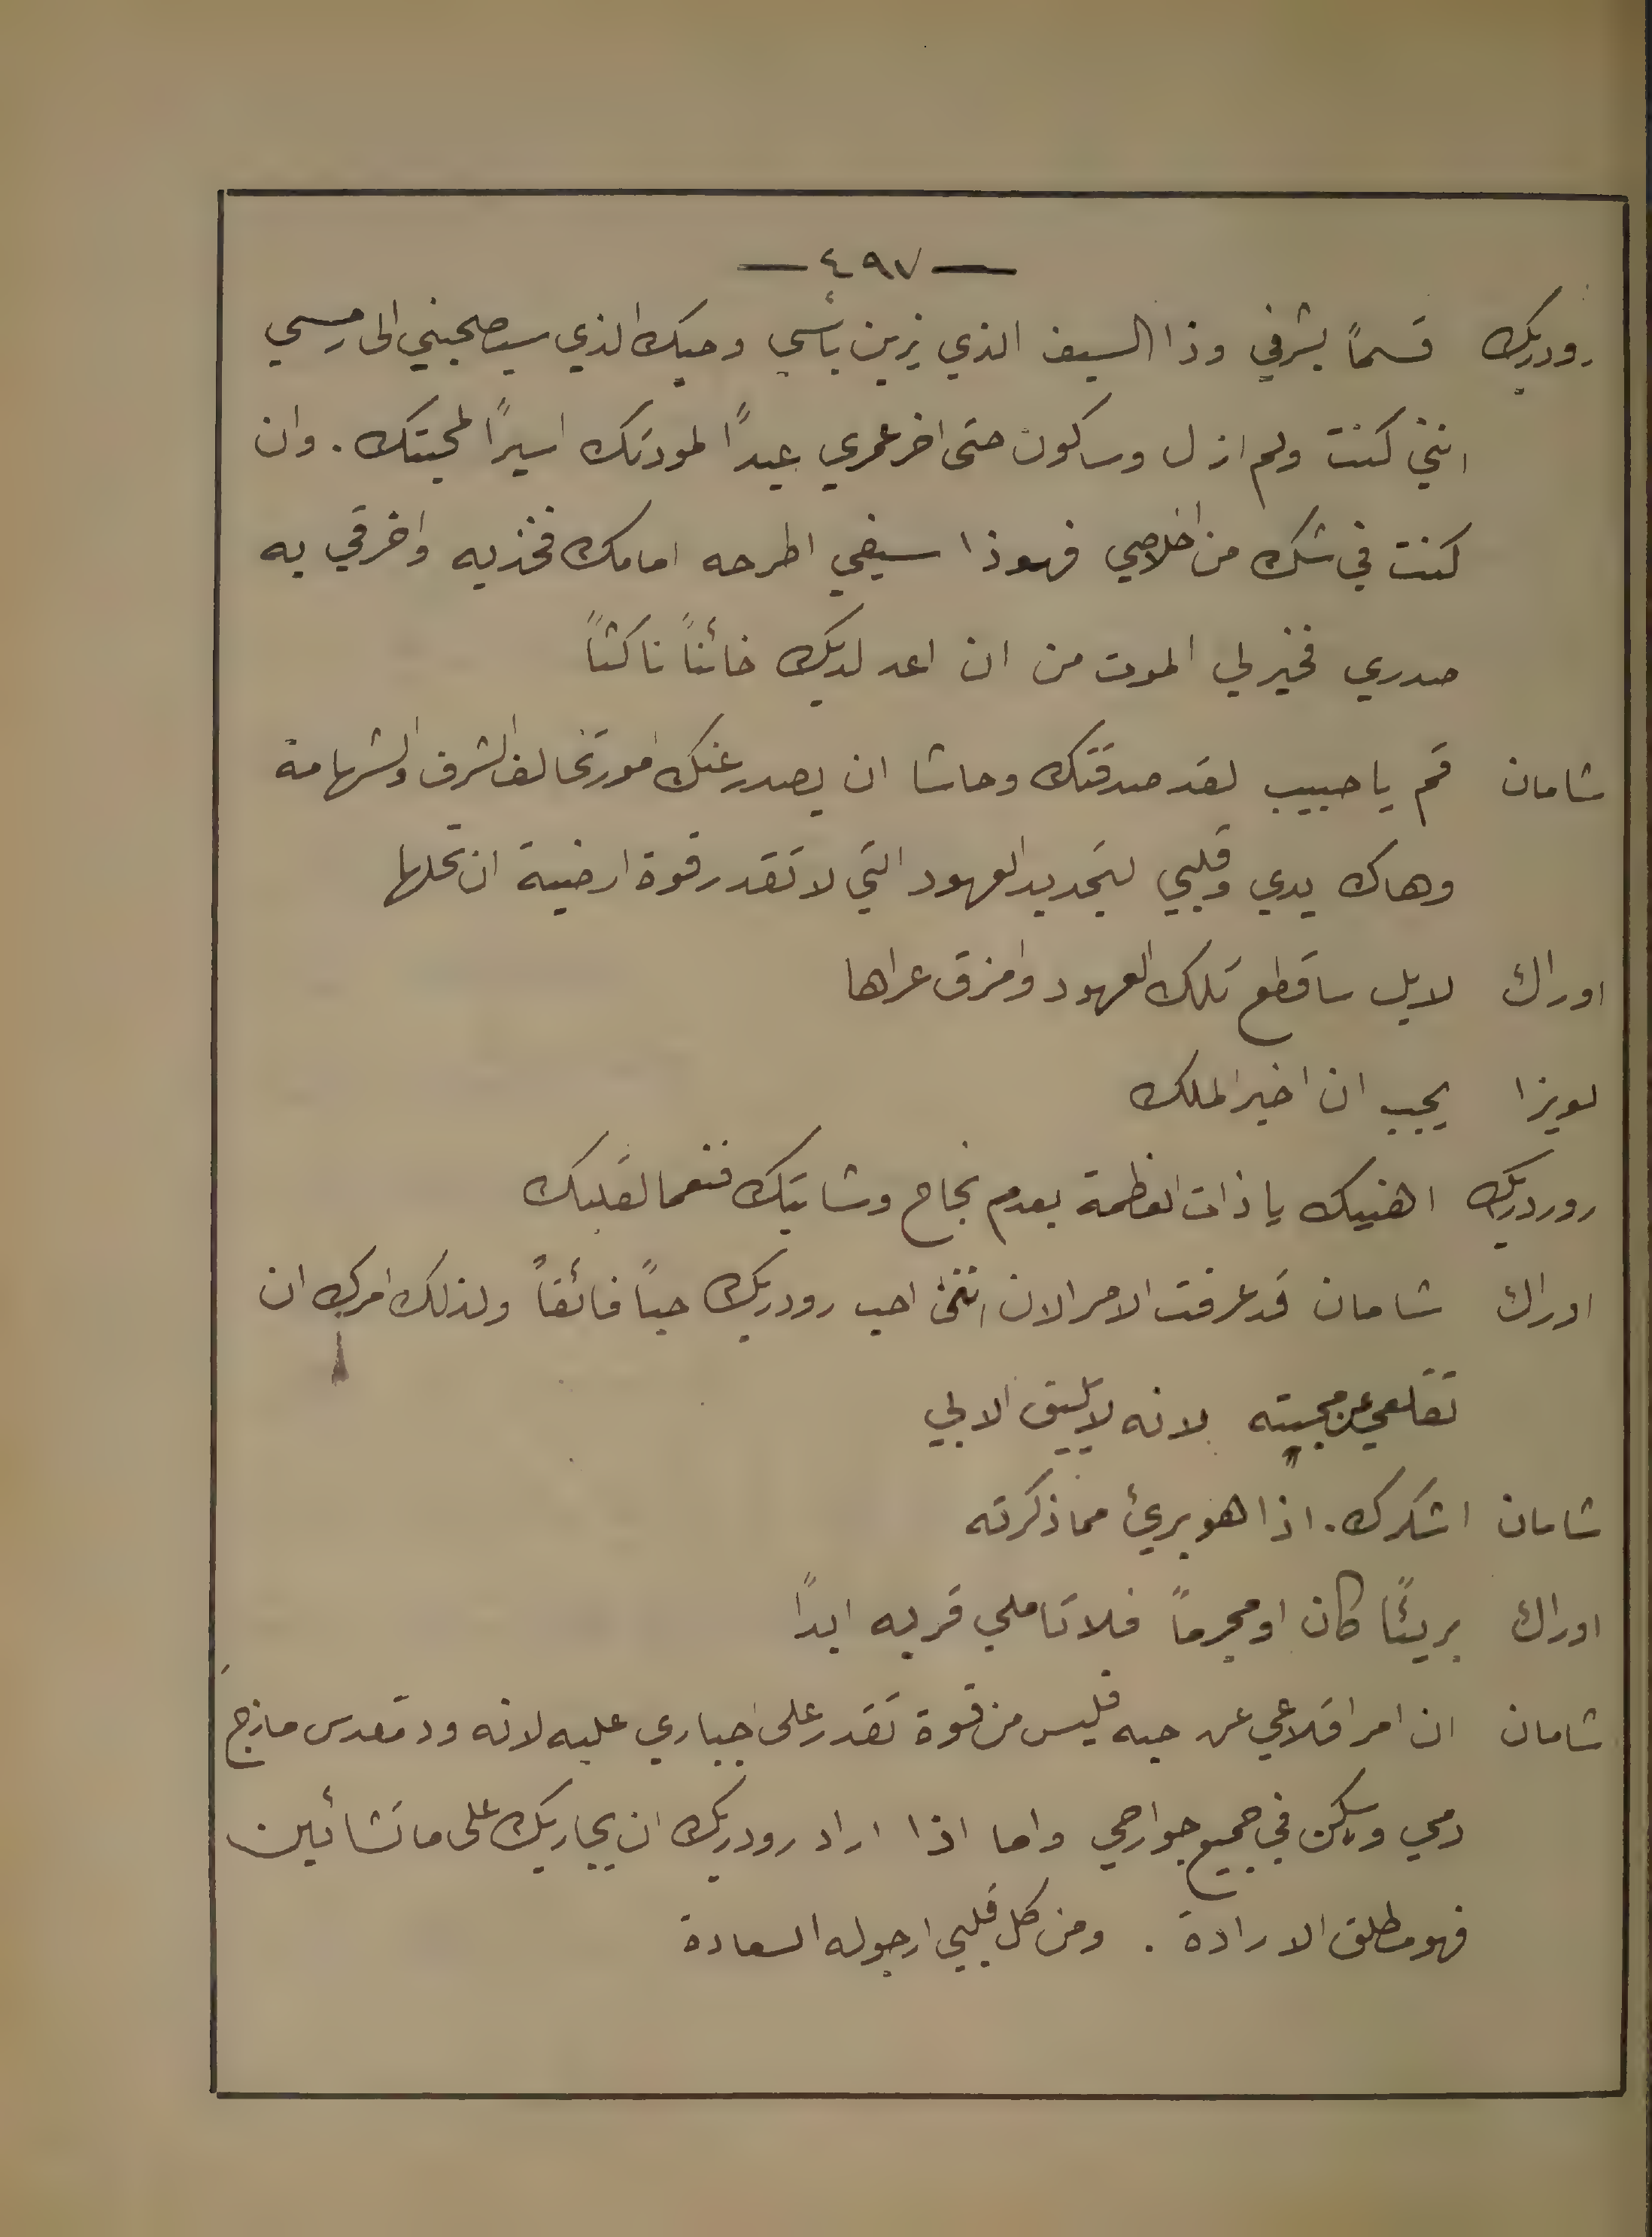 — ٤٩٧ —
رودريك قسماً بشرفي وذا السيف الذي يزين بأسي وحبك الذي سيصحبني الى رمسي
انني كنت ولم ازل وساكون حتى اخر عمري عبداً لمودتك اسيراً لمحبتك . وان
كنت في شك من اخلاصي فهوذا سيفي اطرحه امامك فخذيه واخرقي به
صدري فخير لي الموت من ان اعد لديك خائناً ناكثاً
شامان قم يا حبيب لقد صدقتك وحاشا ان يصدر عنك امور تخالف الشرف والشهامة
وهاك يدي وقلبي لتجديد العهود التي لا تقدر قوة ارضية ان تحلها
اوراك لا بل ساقطع تلك العهود وامزق عراها
لويزا يجب ان اخبر الملك
روردريك اهنيك يا ذات العظمة بعدم نجاح وشايتك فنعما لقلبك
اوراك شامان قد عرفت الامر الان انني احب رودريك حباً فائقاً ولذلك امرك ان
تقلعي عن محبته لانه لا يليق الا بي
شامان اشكرك . اذا هو بريئ مما ذكرته
اوراك بريئاً كان او مجرماً فلا تاملي قربه ابداً
شامان ان امر اقلاعي عن حبه فليس من قوة تقدر على اجباري عليه لانه ود مقدس مازج
دمي ويسكن في جميع جوارحي واما اذا اراد رودريك ان يجاريك على ما تشائين
فهو مطلق الارادة . ومن كل قلبي ارجو له السعادة